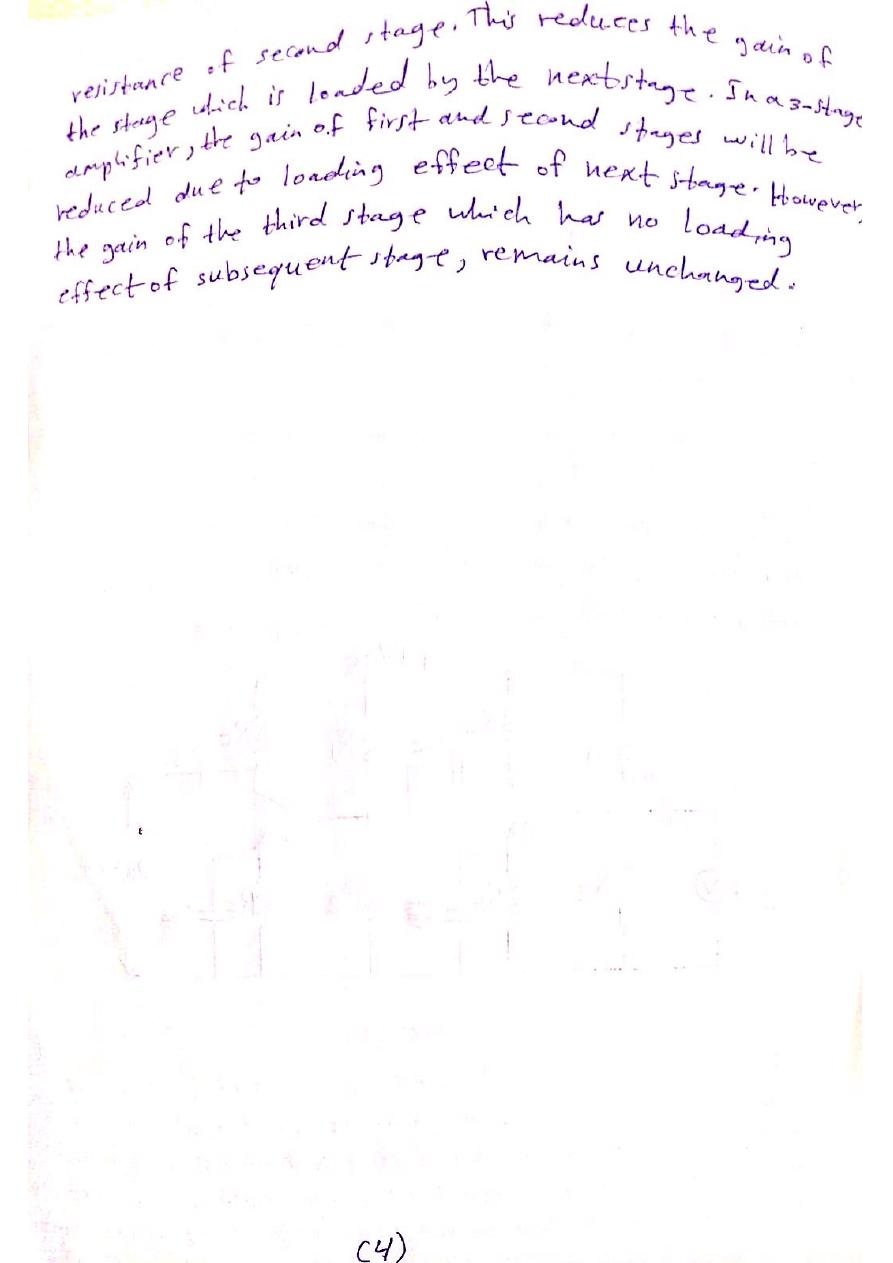 resistance of second stage. This reduces the gain of
the stage which is loaded by the next stage. In a 3-stage
amplifier, the gain of first and second stages will be
reduced due to loading effect of next stage. However,
the gain of the third stage which has no loading
effect of subsequent stage, remains unchanged.
(4)